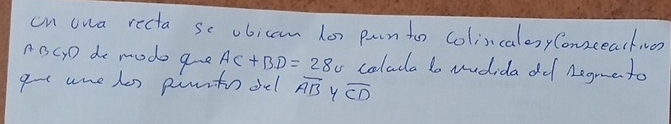 en una recta se ubican los puntos colineales y consecutivos
ABCyD de modo que AC + BD = 28u calcula la medida del segmento
que une los puntos del AB y CD